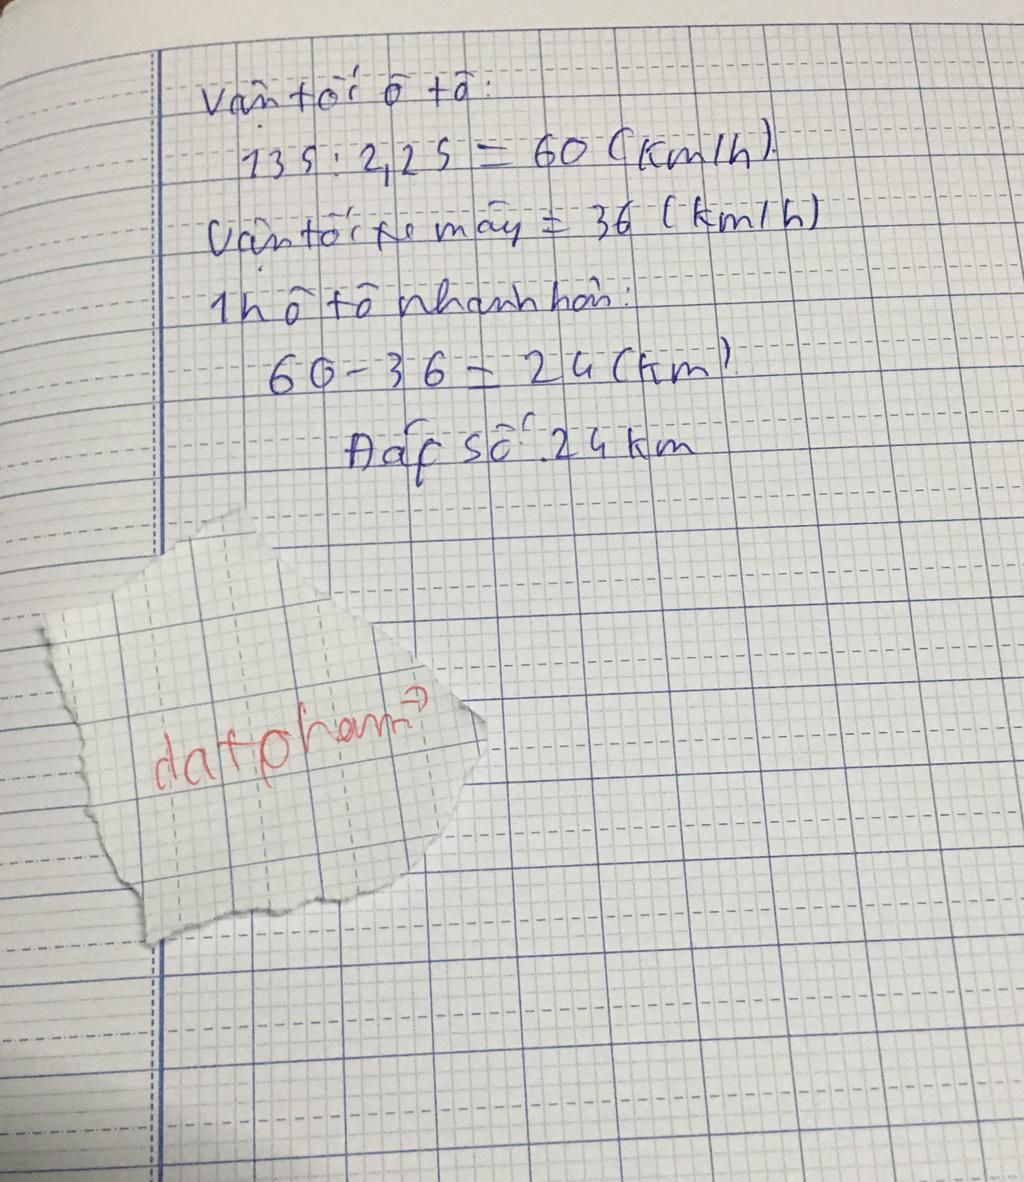 Vận tốc ô tô:
135 : 2,25 = 60 (km/h)
Vận tốc xe máy = 36 (km/h)
1h ô tô nhanh hơn:
60 - 36 = 24 (km)
Đáp số: 24 km
datpham